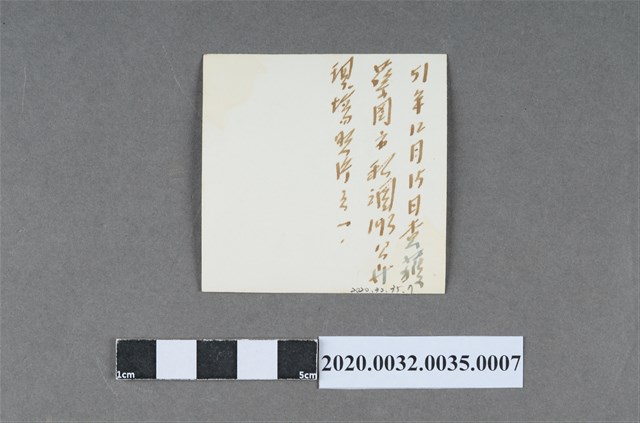 51年12月15日查獲
國方私酒193公升
現場照片之一.
2020.32.35.7
1cm
5cm
2020.0032.0035.0007